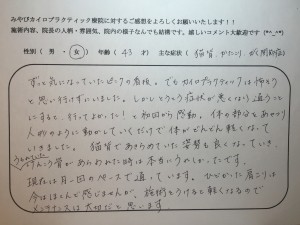 みやびカイロプラクティック療院に対するご感想をよろしくお願いいたします！！
施術内容、院長の人柄・雰囲気、院内の様子なんでも結構です。嬉しいコメント大歓迎です(*^_^*)
性別 ( 男 ・ 女 ) 年齢 ( 43 才) 主な症状 ( 猫背、肩こり、 )
ずっと気になっていたピンクの看板。でもカイロプラクティックは怖そう
と思い行けずにいました。しかしとうとう症状が悪くなり通うこ
とにすると…行ってよかった！と初回から感動。体の部分をあれこれ
人形のように動かしていくだけで体がどんどん軽くなって
いきました。猫背であきらめていた姿勢も良くなっていき、
と言われた時は本当うれしかったです。
現在は月一回のペースで通っています。ひどかった肩こりは
今はほとんど感じませんが、施術をうけると軽くなるので
メンテナンスは大切だと思います